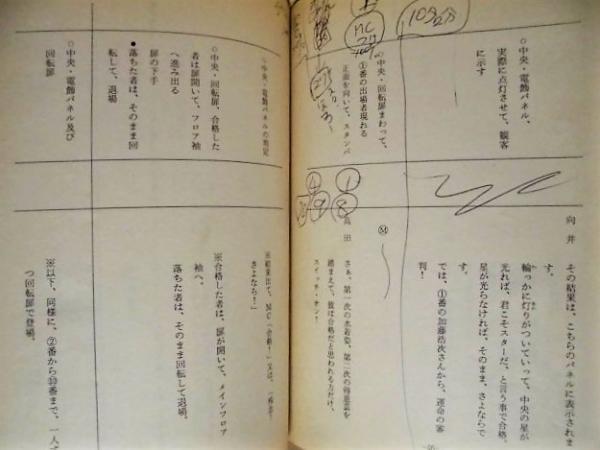 ○中央・電飾パネル、
実際に点灯させて、観客
に示す
○中央・回転扉まわって、
①番の出場者現れる
正面を向いて、スタンバ
10分
MC
向井
その結果は、こちらのパネルに表示されま
す。
輪っかに灯りがついていって、中央の星が
光れば、君こそスターだ、と言う事で合格。
星が光らなければ、そのまま、さよならで
す。
では、①番の加藤浩次さんから、運命の審
判!
Ⓜ
高田
さぁ、第一次の水着姿、第二次の得意芸を
踏まえて、彼は合格だと思われる方だけ、
スイッチ・オン!
①
⑧
④
⑨
○中央・電飾パネルの表記
○中央・回転扉、合格した
者は扉開いて、フロア袖
へ進み出る
扉の下手
●落ちた者は、そのまま回
転して、退場
○中央・電飾パネル及び
回転扉
さよなら!」
※合格した者は、扉が開いて、メインフロア
袖へ。
落ちた者は、そのまま回転して退場。
※以下、同様に、②番から⑩番まで、一人ず
つ回転扉で登場。